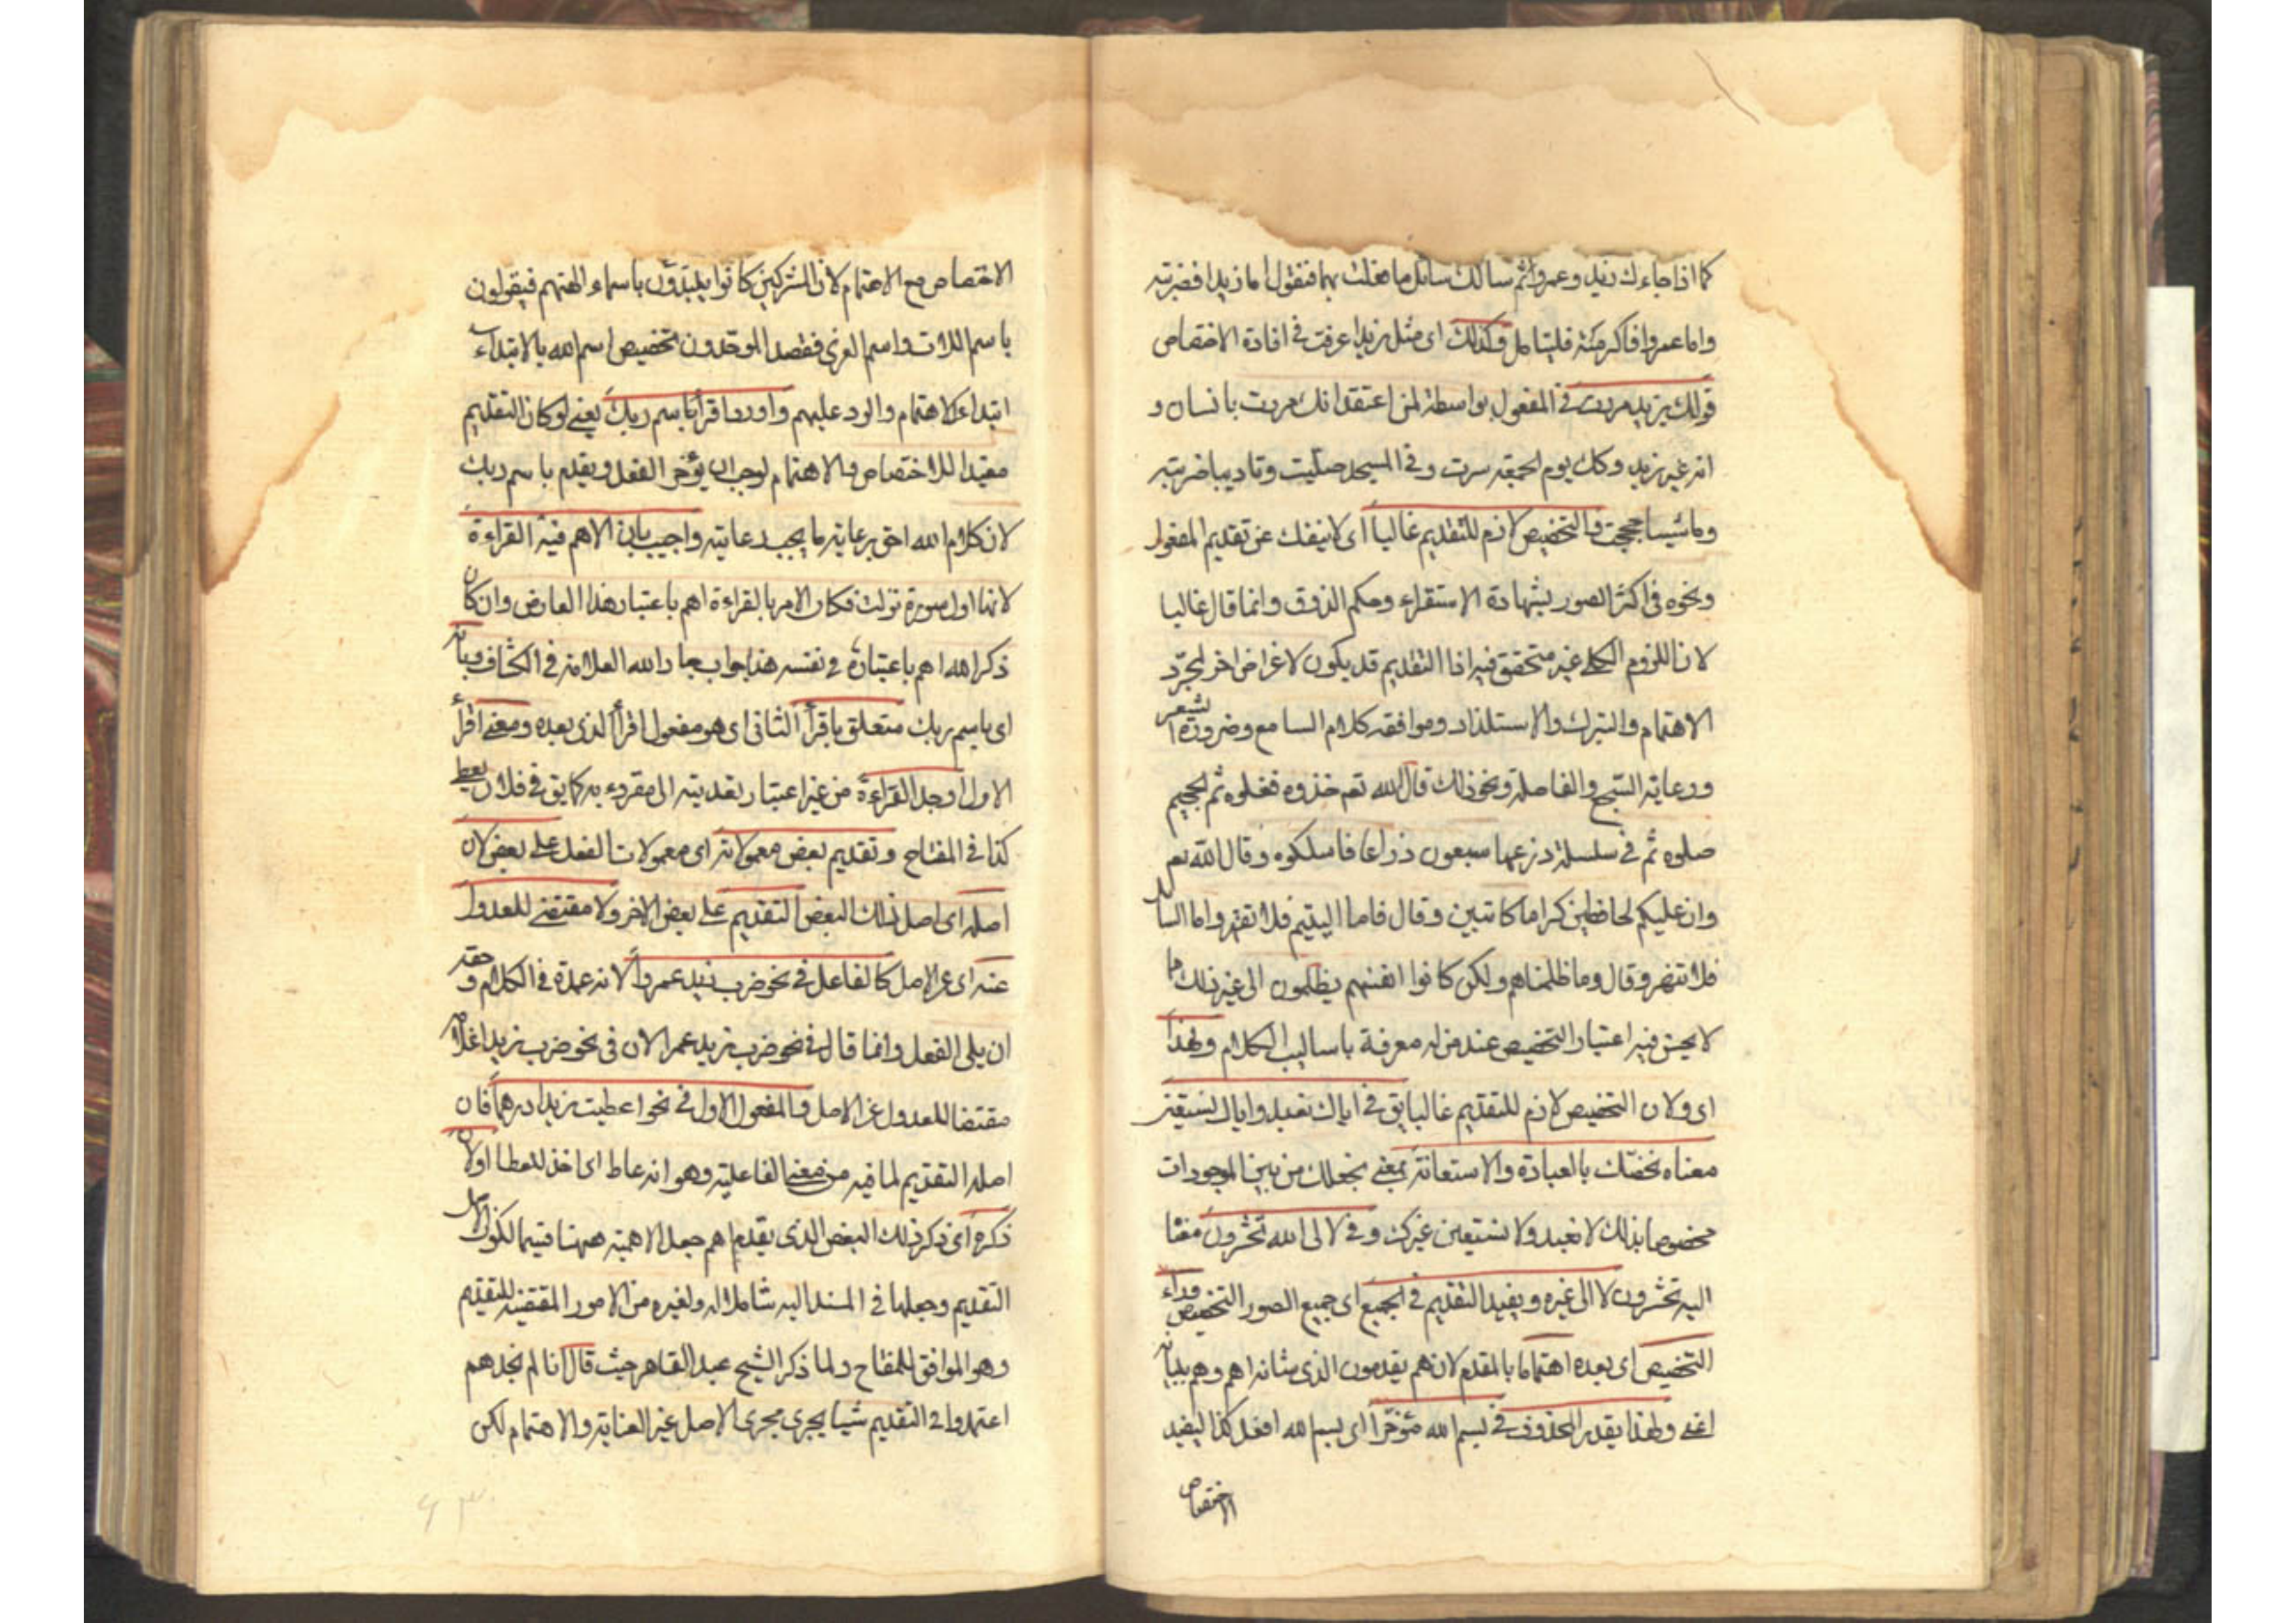 كما اذا جاءك زيد وعمرو ثم سالك سائل ما فعلت بهما فتقول اما زيدا فضربته
واما عمروا فاكرمته فليتامل وكذلك اى مثل زيدا عرفت فى افادة الاختصاص
قولك بزيد مررت فى المفعول بواسطة لمن اعتقد انك مررت بانسان و
انه غير زيد وكك يوم الجمعة سرت وفى المسجد صليت وتاديبا ضربته
وماشيا حججت والتخصيص لازم للتقديم غالبا اى لا ينفك عن تقديم المفعول
ونحوه فى اكثر الصور بشهادة الاستقراء وحكم الذوق وانما قال غالبا
لان اللزوم الكلى غير متحقق فيه اذا التقديم قد يكون لاغراض اخر لمجرّد
الاهتمام والتبرك والاستلذاد وموافقه كلام السامع وضرورة الشعر
ورعاية السّجع والفاصلة ونحو ذلك قال الله تعم خذوه فغلوه ثم الجحيم
صلوه ثم فى سلسلة ذرعها سبعون ذراعا فاسلكوه وقال الله تعم
وان عليكم لحافظين كراما كاتبين وقال فاما اليتيم فلا تقهر واما السائل
فلا تنهر وقال وما ظلمناهم ولكن كانوا انفسهم يظلمون الى غير ذلك مما
لا يحسن فيه اعتبار التخصيص عند من له معرفة باساليب الكلام ولهذا
اى ولان التخصيص لازم للتقديم غالبا يق فى اياك نعبد واياك نستعين
معناه نخصّك بالعبادة والاستعانة بمعنى نجعلك من بين الموجودات
مخصوصا بذلك لا نعبد ولا نستعين غيرك وفى لا لى الله تحشرون معنا
اليه تحشرون لا الى غيره ويفيد التقديم فى الجميع اى جميع الصور التخصيص وراء
التخصيص اى بعده اهتماما بالمقدم لانهم يقدمون الذى شانه اهم وهم ببيانه
اعنى ولهذا يقدر المحذوف فى بسم الله مؤخّرا اى بسم الله افعل كذا ليفيد
الاختصاص
الاختصاص مع الاهتمام لان المشركين كانوا يبتدؤن باسماء الهتهم فيقولون
باسم اللات واسم العزى فقصد الموحّدون تخصيص اسم الله بالابتداء
ابتداء للاهتمام والرد عليهم واورد اقرأ باسم ربك يعنى لو كان التقديم
مفيدا للاختصاص والاهتمام لوجب ان يؤخر الفعل ويقدم باسم ربك
لان كلام الله احق برعاية ما يجب رعايته واجيب بان الاهم فيه القراءة
لانها اول سورة نزلت فكان الامر بالقراءة اهم باعتبار هذا العارض وان كان
ذكر الله اهم باعتباره فى نفسه هذا جواب جار الله العلامة فى الكشاف وبانه
اى باسم ربك متعلق باقرأ الثانى اى هو مفعول اقرأ الذى بعده ومعنى اقرأ
الاول اوجد القراءة من غير اعتبار تعديته الى مقروء به كما يق فى فلان يعطى
كذا فى المفتاح وتقديم بعض معمولاته اى معمولات الفعل على بعض لان
اصله اى اصل ذلك البعض التقديم على بعض الاخر ولا مقتضى للعدول
عنه اى عن الاصل كالفاعل فى نحو ضرب زيد عمروا لانه عمدة فى الكلام وحقه
ان يلى الفعل وانما قال فى نحو ضرب زيد عمرا لان فى نحو ضرب زيدا غلامه
مقتضا للعدول عن الاصل والمفعول الاول فى نحو اعطيت زيدا درهما فان
اصله التقديم لما فيه من معنى الفاعلية وهو انه عاط اى اخذ للعطا اولان
ذكره اى ذكر ذلك البعض الذى يقدم اهم جعل الاهمية ههنا قسيما لكون الاصل
التقديم وجعلها فى المسند اليه شاملا له ولغيره من الامور المقتضية للتقديم
وهو الموافق للمفتاح ولما ذكر الشيخ عبد القاهر حيث قال انا لم نجدهم
اعتمدوا فى التقديم شيئا يجرى مجرى الاصل غير العناية والاهتمام لكن